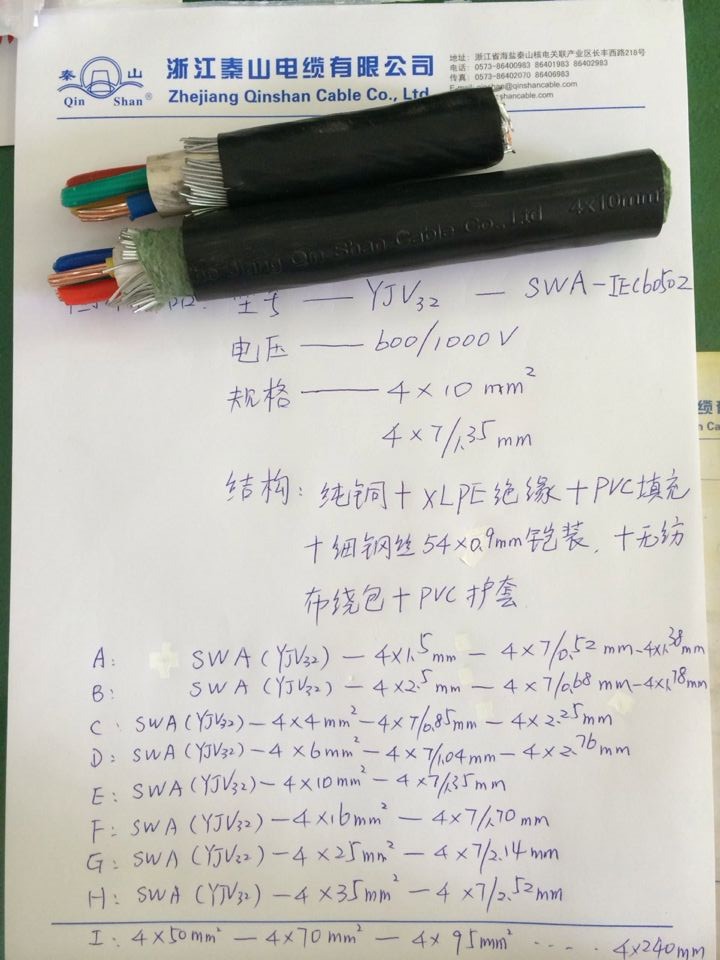 秦 山
Qin Shan®
浙江秦山电缆有限公司
Zhejiang Qinshan Cable Co., Ltd
地址: 浙江省海盐秦山核电关联产业区长丰西路218号
电话: 0573-86400983 86401983 86402983
传真: 0573-86402070 86406983
@qinshancable.com
shancable.com
Jiang Qin Shan Cable Co., Ltd 4x10mm²
型号 — YJV32 — SWA-IEC60502
电压 — 600/1000V
规格 — 4×10mm²
4×7/1.35mm
结构: 纯铜+XLPE绝缘+PVC填充
+细钢丝54×0.9mm铠装, +无纺
布绕包+PVC护套
A: SWA(YJV32)-4×1.5mm-4×7/0.52mm-4×1.38mm
B: SWA(YJV32)-4×2.5mm-4×7/0.68mm-4×1.78mm
C: SWA(YJV32)-4×4mm²-4×7/0.85mm-4×2.25mm
D: SWA(YJV32)-4×6mm²-4×7/1.04mm-4×2.76mm
E: SWA(YJV32)-4×10mm²-4×7/1.35mm
F: SWA(YJV32)-4×16mm²-4×7/1.70mm
G: SWA(YJV32)-4×25mm²-4×7/2.14mm
H: SWA(YJV32)-4×35mm²-4×7/2.52mm
I: 4×50mm²-4×70mm²-4×95mm² ---- 4×240mm
缆
n Ca